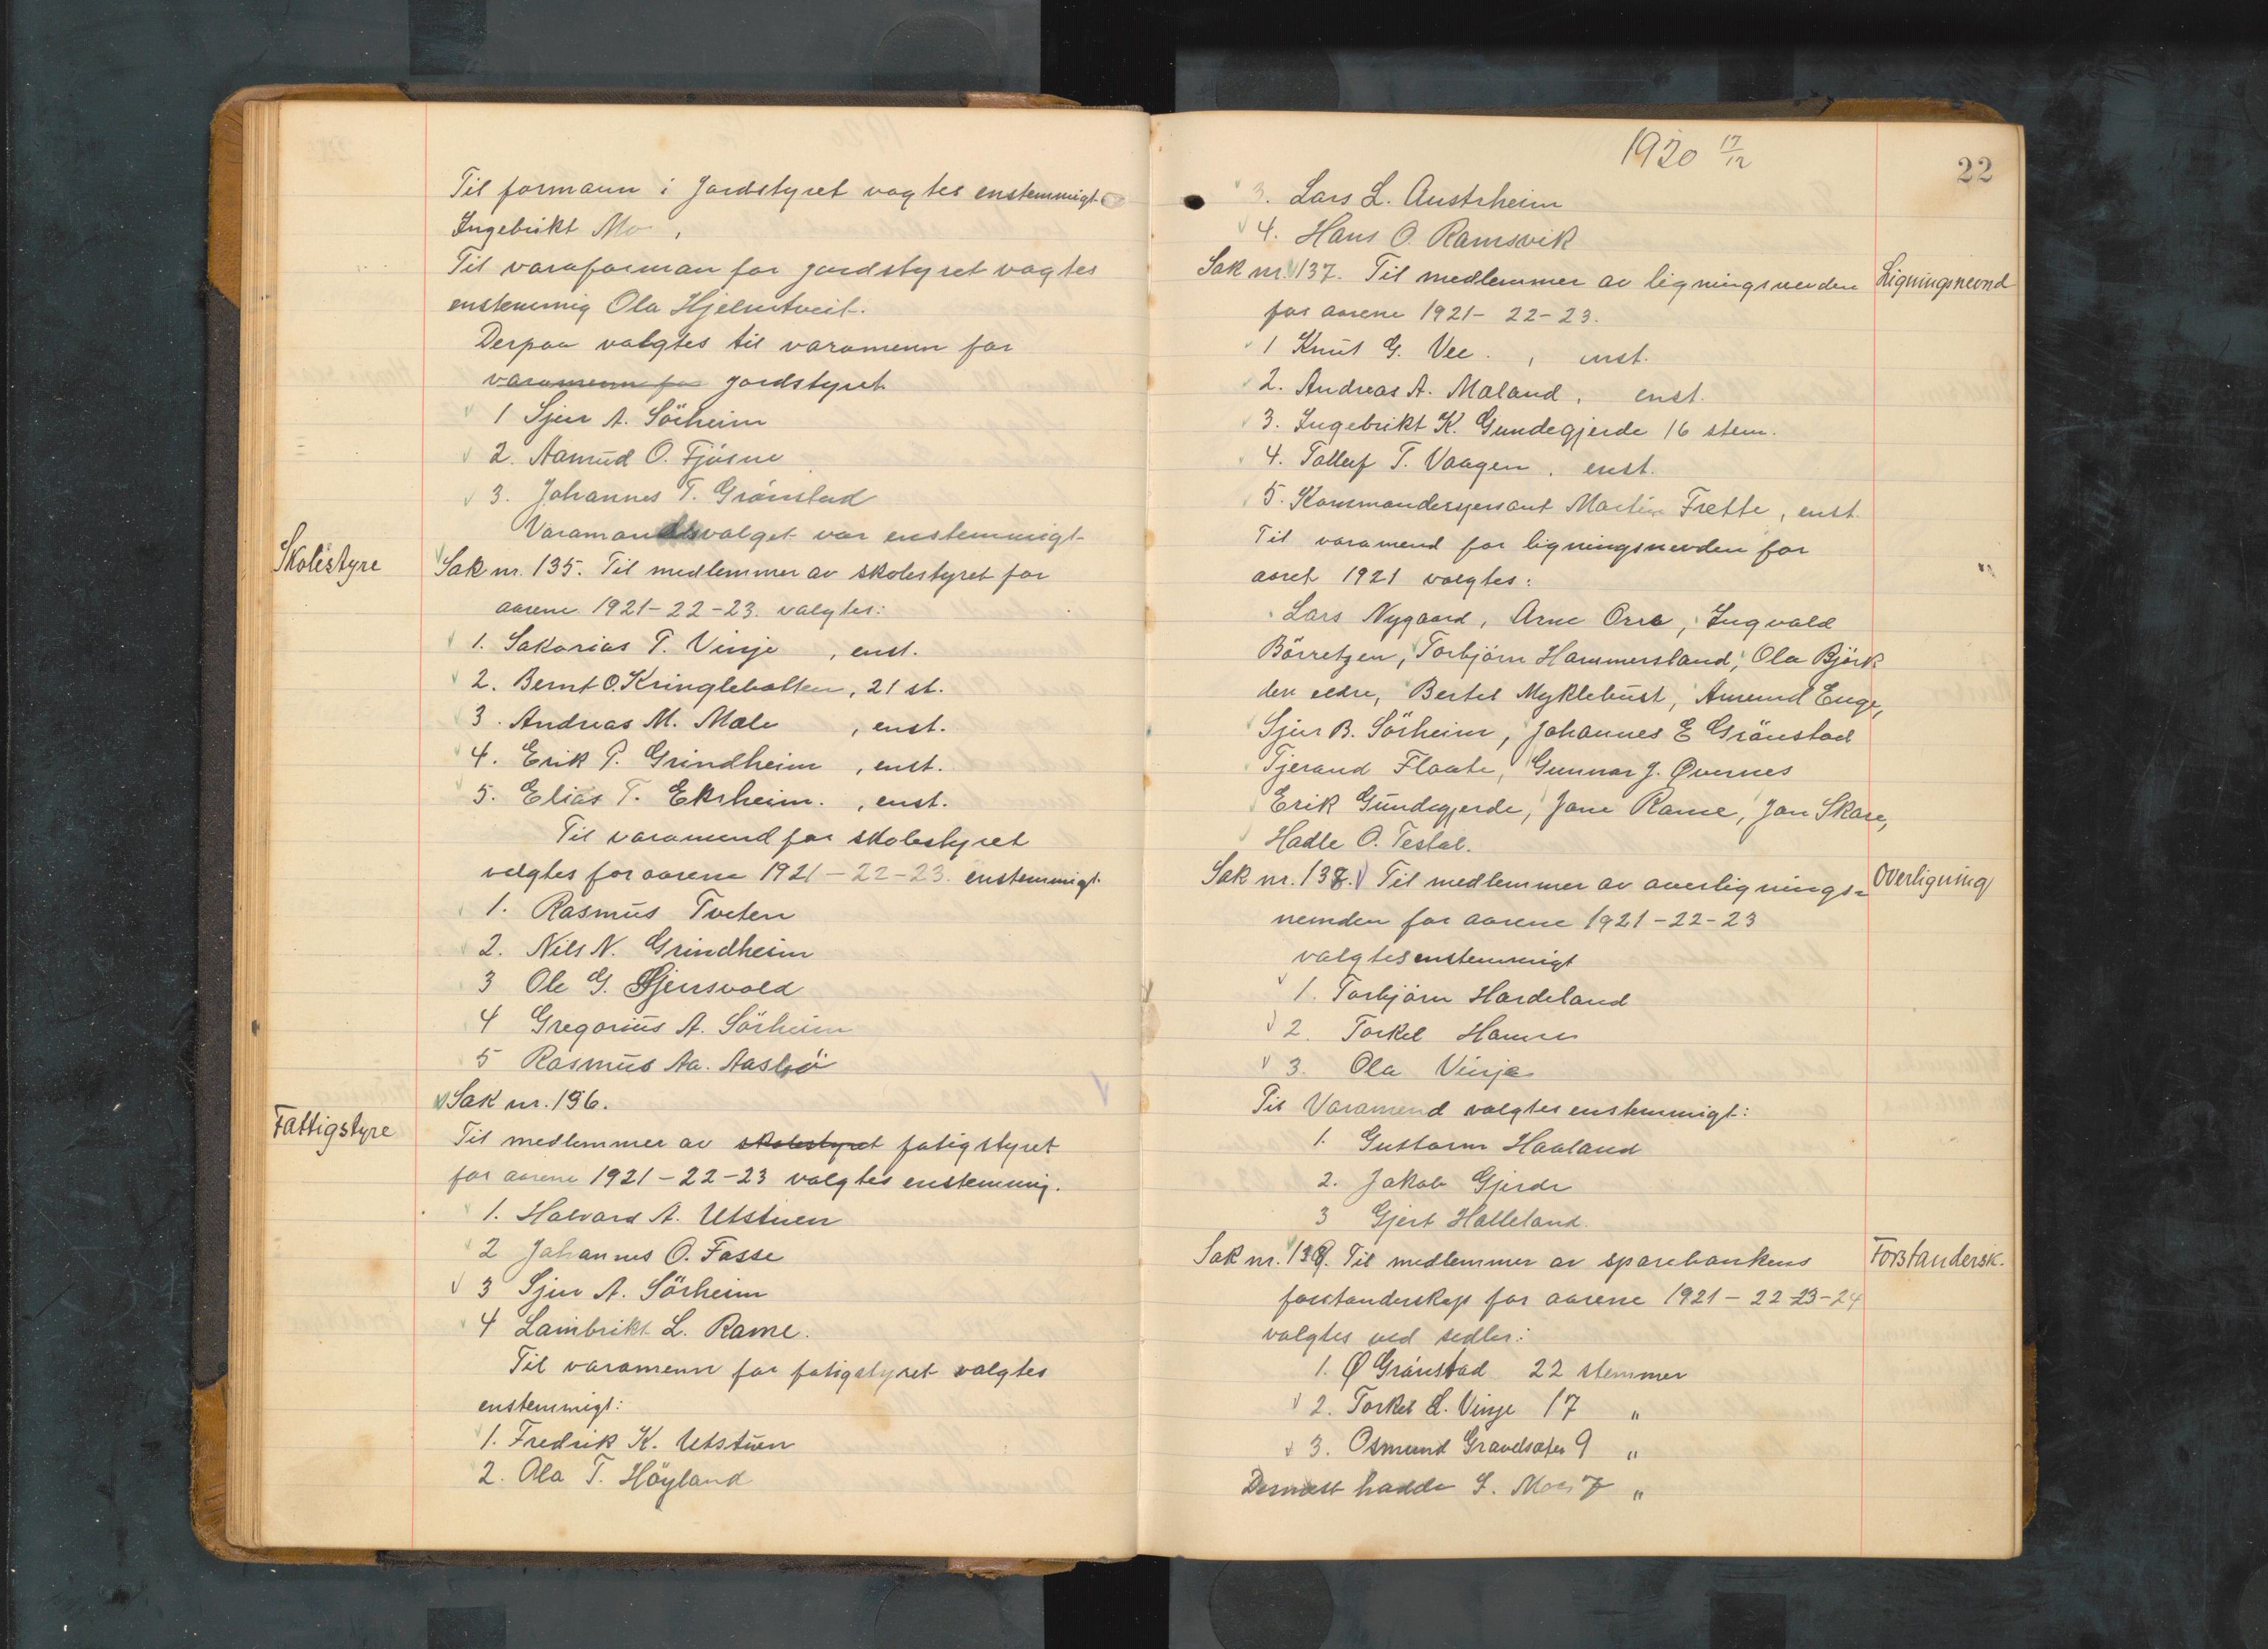 Til formann i Jordstyret vagtes enstemmigt
Ingebrikt Mo,
Til varaforman for jordstyret vagtes
enstemmig Ola Hjelmtveit.
Derpaa valgtes til varamenn for
varamenn for jordstyret
1 Sjur A. Sörheim
2. Aamud O. Fjösne
3. Johannes T. Grönstad
Varamandsvalget var enstemmigt
Skolestyre
Sak nr. 135. Til medlemmer av skolestyret for
aarene 1921-22-23. valgtes:
1. Sakarias T. Vinje , enst.
2. Bernt O. Kringlebotten, 21 st.
3. Andreas M. Mæle , enst.
4. Erik P. Grindheim , enst.
5. Elias T. Ekrheim. , enst.
Til varamend for skolestyret
velgtes for aarene 1921-22-23. enstemmigt.
1. Rasmus Tveten
2. Nils N. Grindheim
3 Ole G. Sjersvold
4 Gregorius A. Sörheim
5 Rasmus Aa. Aasbö
Fattigstyre
Sak nr. 136.
Til medlemmer av skolestyret fatigstyret
for aarene 1921-22-23 valgtes enstemmig.
1. Halvard A. Utstuen
2 Johannes O. Fosse
3 Sjur A. Sörheim
4 Lambrikt L. Rame.
Til varamenn for fatigstyret valgtes
enstemmigt:
1. Fredrik K. Utstuen
2. Ola T. Höyland
1920 17/12
22
3. Lars L. Austrheim
4. Hans O. Ramsvik
Sak nr. 137. Til medlemmer av ligningsnevden
Ligningsnevnd
for aarene 1921-22-23.
1 Knut G. Vee. , enst.
2. Andreas A. Maland, enst.
3. Ingebrikt K. Gundegjerde 16 stem.
4. Tollef T. Vaagen, enst.
5. Kommandersjersant Martin Frette, enst.
Til varamend for ligningsnevden for
aaret 1921 valgtes:
Lars Nygaard, Arne Orre, Ingvald
Börretzen, Torbjörn Hammersland, Ola Björk
den eldre, Bertel Myklebust, Amund Enge,
Sjur B. Sörheim, Johannes E Grönstad
Tjerand Flaate, Gunnar J. Øvernes
Erik Gundegjerde, Jone Rame, Jon Skare,
Hadle O. Testal.
Sak nr. 138. Til medlemmer av overlignings-
Overligning
nemden for aarene 1921-22-23
valgtes enstemmigt
1. Torbjörn Hardeland
2. Torkel Hamre
3. Ola Vinje
Til Varamend valgtes enstemmigt:
1. Guttorm Haaland
2. Jakob Gjerde
3 Gjert Halleland.
Sak nr. 139. Til medlemmer av sparebankens
Forstandersk.
forstanderskap for aarene 1921-22-23-24
valgtes ved sedler:
1. Ø Grönstad 22 stemmer
2. Torkel L. Vinje 17 "
3. Osmund Gravelsæter 9 "
Dernæst hadde I. Moe 7 "